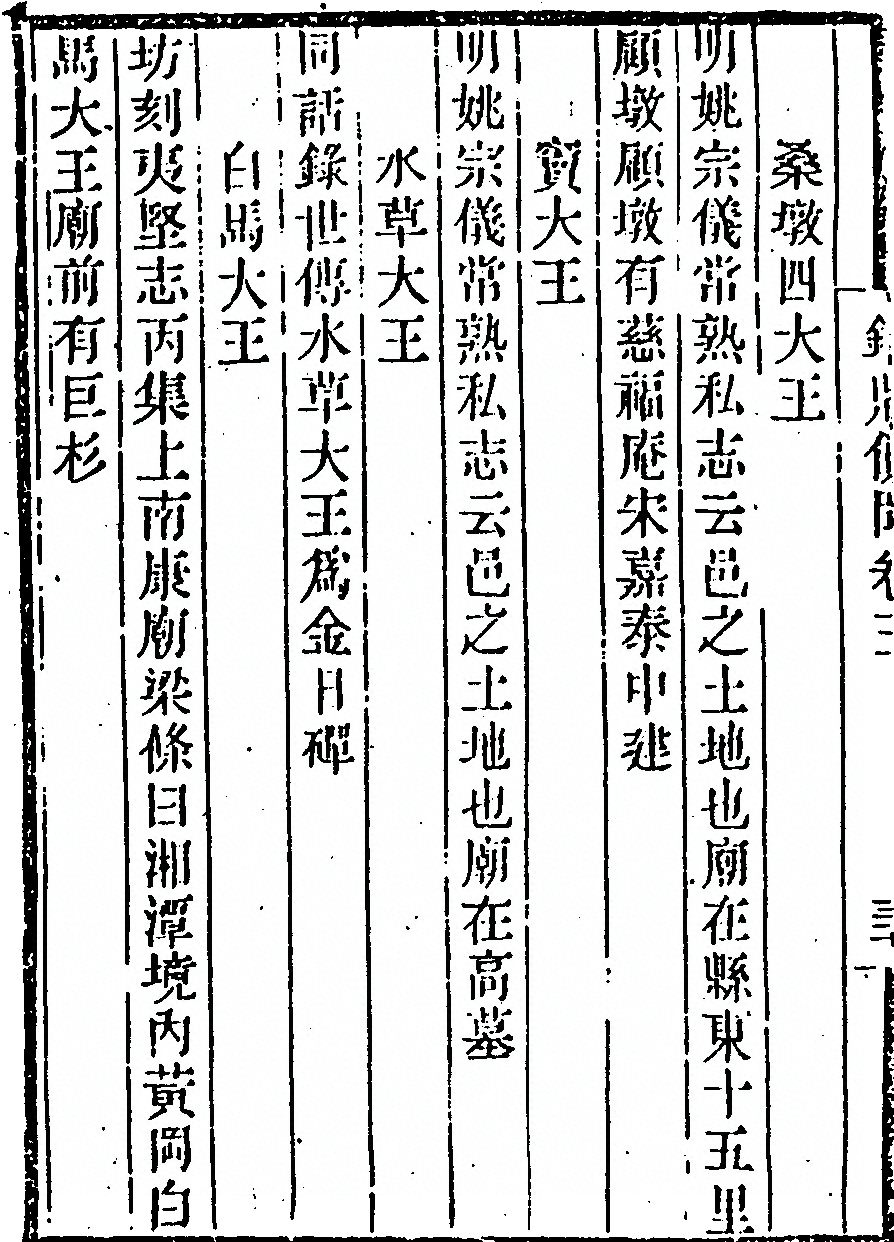 桑墩四大王
明姚宗儀常熟私志云邑之土地也廟在縣東十五里
顧墩顧墩有慈福庵宋嘉泰中建
竇大王
明姚宗儀常熟私志云邑之土地也廟在高墓
水草大王
同話錄世傳水草大王爲金日磾
白馬大王
坊刻夷堅志丙集上南康廟梁條曰湘潭境內黃岡白
馬大王廟前有巨杉